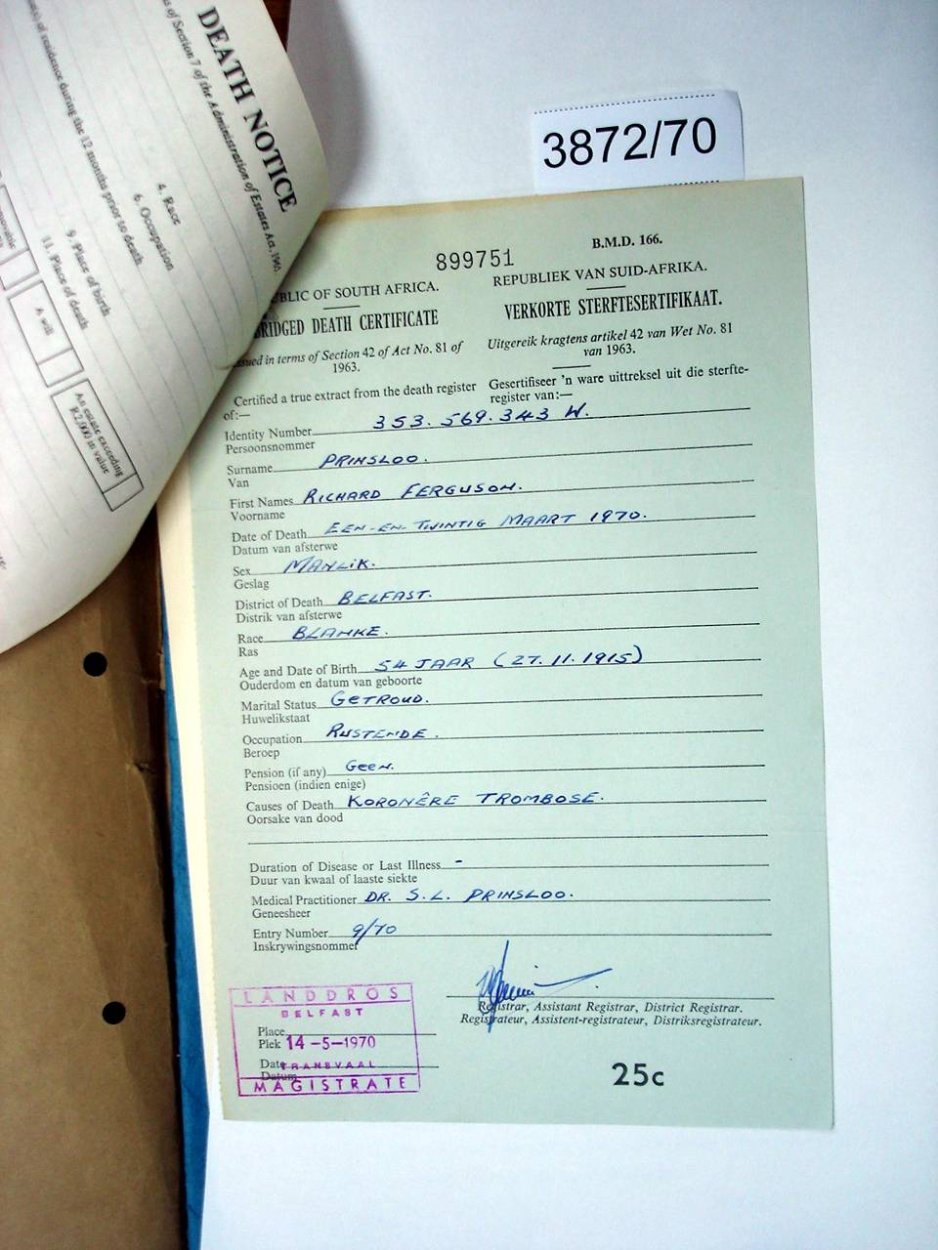 DEATH NOTICE
s of Section 7 of the Administration of Estates Act, 1965
of residence during the 12 months prior to death
4. Race
6. Occupation
9. Place of birth
11. Place of death
A will
An estate exceeding
R2,000 in value
3872/70
899751
B.M.D. 166.
BLIC OF SOUTH AFRICA.
REPUBLIEK VAN SUID-AFRIKA.
RIDGED DEATH CERTIFICATE
VERKORTE STERFTESERTIFIKAAT.
ssued in terms of Section 42 of Act No. 81 of
1963.
Uitgereik kragtens artikel 42 van Wet No. 81
van 1963.
Certified a true extract from the death register
of:—
Gesertifiseer 'n ware uittreksel uit die sterfte-
register van:—
Identity Number 353.569.343 W.
Persoonsnommer
Surname PRINSLOO.
Van
First Names RICHARD FERGUSON.
Voorname
Date of Death EEN-EN-TWINTIG MAART 1970.
Datum van afsterwe
Sex MANLIK.
Geslag
District of Death BELFAST.
Distrik van afsterwe
Race BLANKE.
Ras
Age and Date of Birth 54 JAAR (27.11.1915)
Ouderdom en datum van geboorte
Marital Status GETROUD.
Huwelikstaat
Occupation RUSTENDE.
Beroep
Pension (if any) GEEN.
Pensioen (indien enige)
Causes of Death KORONÊRE TROMBOSE.
Oorsake van dood
Duration of Disease or Last Illness -
Duur van kwaal of laaste siekte
Medical Practitioner DR. S.L. PRINSLOO.
Geneesheer
Entry Number 9/70
Inskrywingsnommer
Registrar, Assistant Registrar, District Registrar.
Registrateur, Assistent-registrateur, Distriksregistrateur.
LANDDROS
BELFAST
Place
Plek 14-5-1970
Date TRANSVAAL
Datum
MAGISTRATE
25c